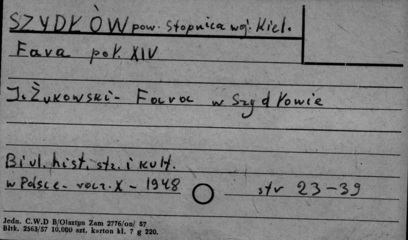 SZYDŁÓW pow. Stopnica woj. Kiel.
Fara poł. XIV
J. Żukowski - Fara w Szydłowie
Biul. hist. szt. i kult.
w Polsce - rocz. X - 1948 str 23-39
Jedn. C.W.D B/Olsztyn Zam 2776/on/ 57
Bltk. 2563/57 10.000 szt. karton kl. 7 g 220.